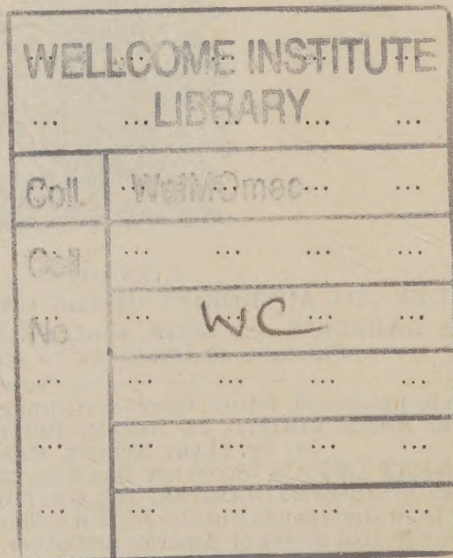 WELLCOME INSTITUTE
... LIBRARY ... ...
Coll. WelMOmec ... ...
Coll. ... ... ... ...
No. ... WC ... ...
... ... ... ... ...
... ... ... ... ...
... ... ... ... ...